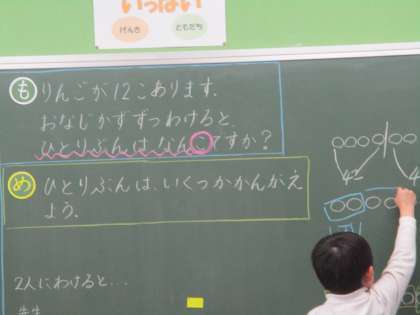 いっぱい
げんき
ともだち
も りんごが12こあります。
おなじかずずつわけると、
ひとりぶんはなんこですか？
め ひとりぶんは、いくつかかんがえ
よう。
4
4
2人にわけると…
先生